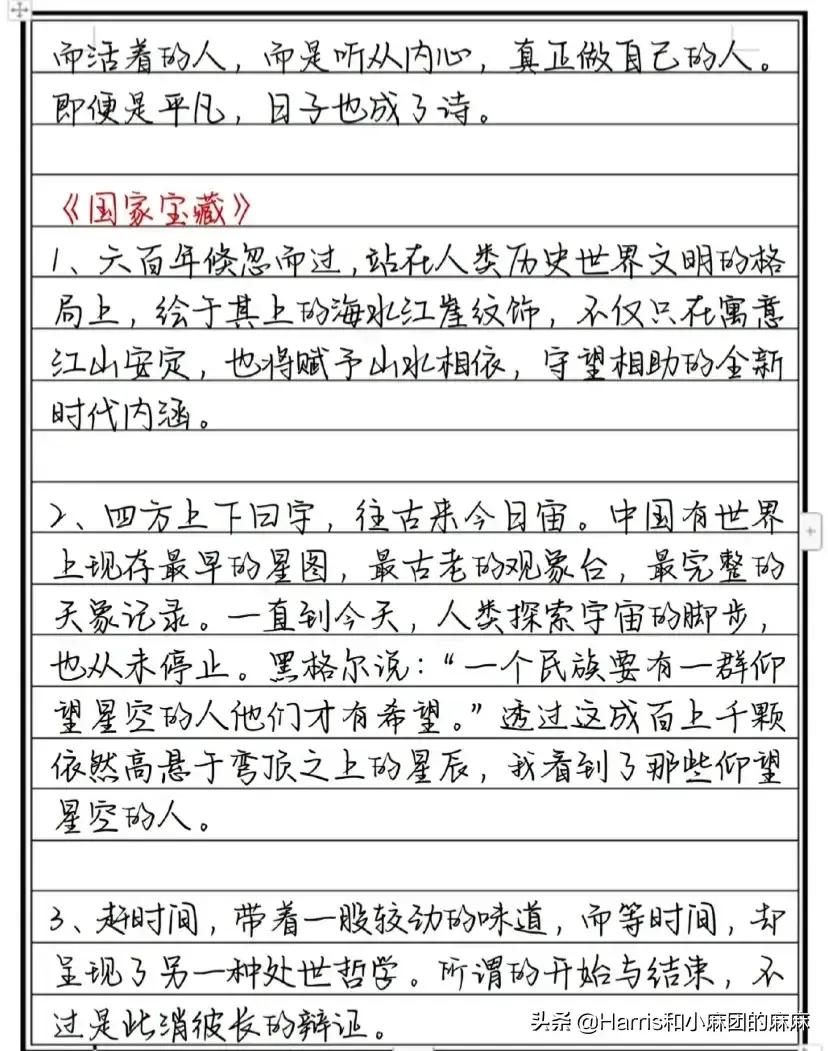 而活着的人，而是听从内心，真正做自己的人。
即便是平凡，日子也成了诗。
《国家宝藏》
1、六百年倏忽而过，站在人类历史世界文明的格
局上，绘于其上的海水江崖纹饰，不仅只在寓意
江山安定，也将赋予山水相依，守望相助的全新
时代内涵。
2、四方上下曰宇，往古来今曰宙。中国有世界
上现存最早的星图，最古老的观象台，最完整的
天象记录。一直到今天，人类探索宇宙的脚步，
也从未停止。黑格尔说：“一个民族要有一群仰
望星空的人他们才有希望。”透过这成百上千颗
依然高悬于穹顶之上的星辰，我看到了那些仰望
星空的人。
3、赶时间，带着一股较劲的味道，而等时间，却
呈现了另一种处世哲学。所谓的开始与结束，不
过是此消彼长的辩证。
头条 @Harris和小麻团的麻麻